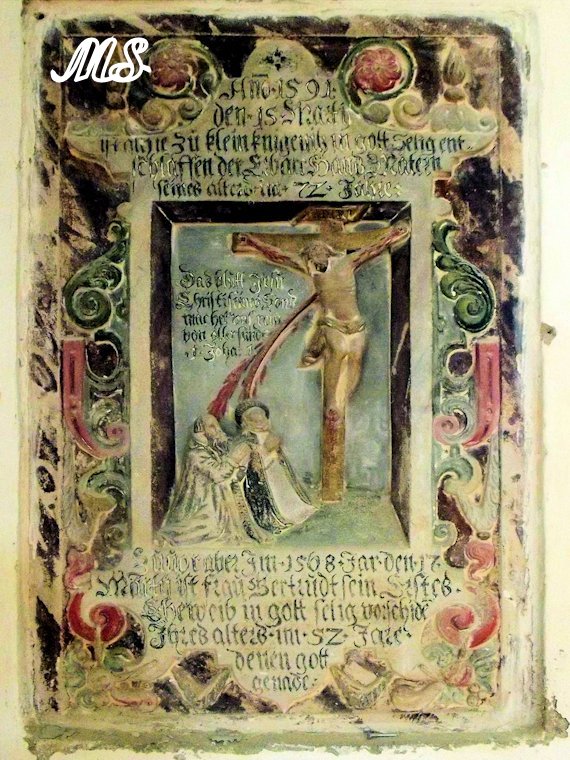 MS
Año · 1591
den · 15 Martij
ist alhie zu klein knigenitz in gott selig ent-
schlaffen der Erbare Hans Matern
seines alters im 72 Jahres
Das blutt Jesu
Christi
machet uns rein
von aller sunde
1 Joha 1
Zuvor aber Im · 1568 · Jar den 17
ist frau Gertrudt sein Erstes
Eheweib in gott selig vorschide
Ihres alters · im · 52 · Jare
denen gott
genade ·